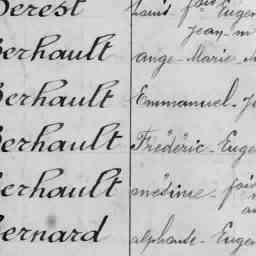 Derest Louis Eugen
Jean-M
Berhault ange-Marie
Berhault Emmanuel-J
Berhault Frédéric-Euge
Berhault onésime fois
Bernard alphonse-Eugen